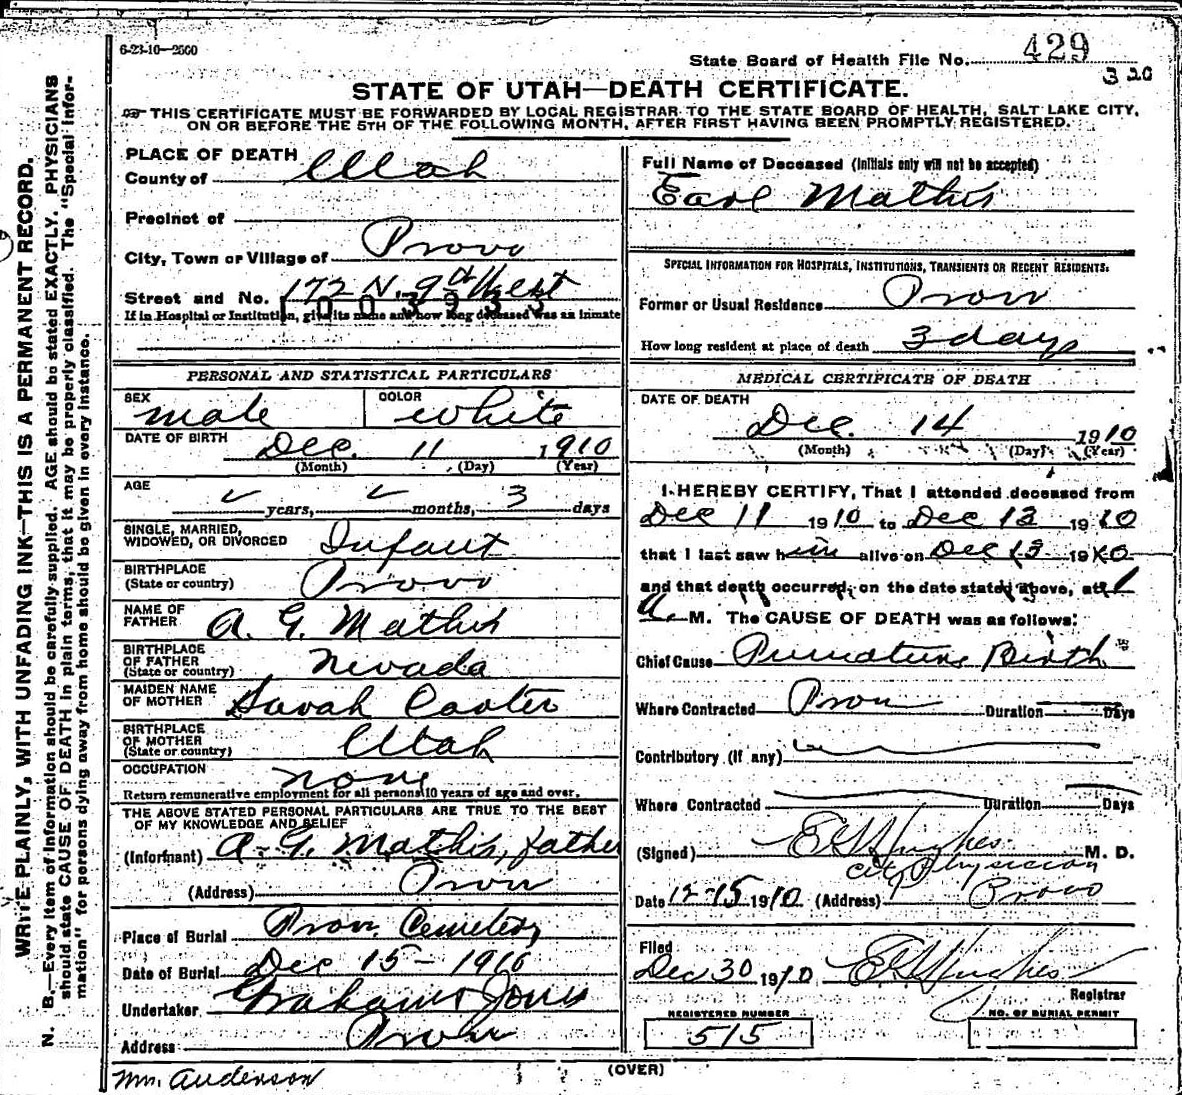 6-23-10—2500
State Board of Health File No. 429
3 20
STATE OF UTAH—DEATH CERTIFICATE.
THIS CERTIFICATE MUST BE FORWARDED BY LOCAL REGISTRAR TO THE STATE BOARD OF HEALTH, SALT LAKE CITY,
ON OR BEFORE THE 5TH OF THE FOLLOWING MONTH, AFTER FIRST HAVING BEEN PROMPTLY REGISTERED.
WRITE PLAINLY, WITH UNFADING INK—THIS IS A PERMANENT RECORD.
N. B.—Every item of information should be carefully supplied. AGE should be stated EXACTLY. PHYSICIANS
should state CAUSE OF DEATH in plain terms, that it may be properly classified. The "Special Infor-
mation" for persons dying away from home should be given in every instance.
PLACE OF DEATH
County of Utah
Precinct of
City, Town or Village of Provo
Street and No. 172 N. 9th West
1003933
If in Hospital or Institution, give its name and how long deceased was an inmate
PERSONAL AND STATISTICAL PARTICULARS
SEX male COLOR White
DATE OF BIRTH Dec. 11 1910
(Month) (Day) (Year)
AGE years, months, 3 days
SINGLE, MARRIED,
WIDOWED, OR DIVORCED Infant
BIRTHPLACE
(State or country) Provo
NAME OF
FATHER A. G. Mathis
BIRTHPLACE
OF FATHER
(State or country) Nevada
MAIDEN NAME
OF MOTHER Sarah Carter
BIRTHPLACE
OF MOTHER
(State or country) Utah
OCCUPATION none
Return remunerative employment for all persons 10 years of age and over.
THE ABOVE STATED PERSONAL PARTICULARS ARE TRUE TO THE BEST
OF MY KNOWLEDGE AND BELIEF
(Informant) A. G. Mathis, father
(Address) Provo
Place of Burial Provo Cemetery
Date of Burial Dec 15 - 1910
Undertaker Graham & Jones
Address Provo
Mrs. Anderson
Full Name of Deceased (Initials only will not be accepted)
Earl Mathis
SPECIAL INFORMATION FOR HOSPITALS, INSTITUTIONS, TRANSIENTS OR RECENT RESIDENTS.
Former or Usual Residence Provo
How long resident at place of death 3 days
MEDICAL CERTIFICATE OF DEATH
DATE OF DEATH
Dec. 14 1910
(Month) (Day) (Year)
I HEREBY CERTIFY, That I attended deceased from
Dec 11 1910 to Dec 13 1910
that I last saw him alive on Dec 13 1910
and that death occurred, on the date stated above, at 1
A. M. The CAUSE OF DEATH was as follows:
Chief Cause Premature Birth
Where Contracted Provo Duration Days
Contributory (If any)
Where Contracted Duration Days
(Signed) E G Hughes M. D.
City Physician
Date 12-15 1910 (Address) Provo
Filed
Dec 30 1910 E G Hughes
Registrar
REGISTERED NUMBER
515
NO. OF BURIAL PERMIT
(OVER)